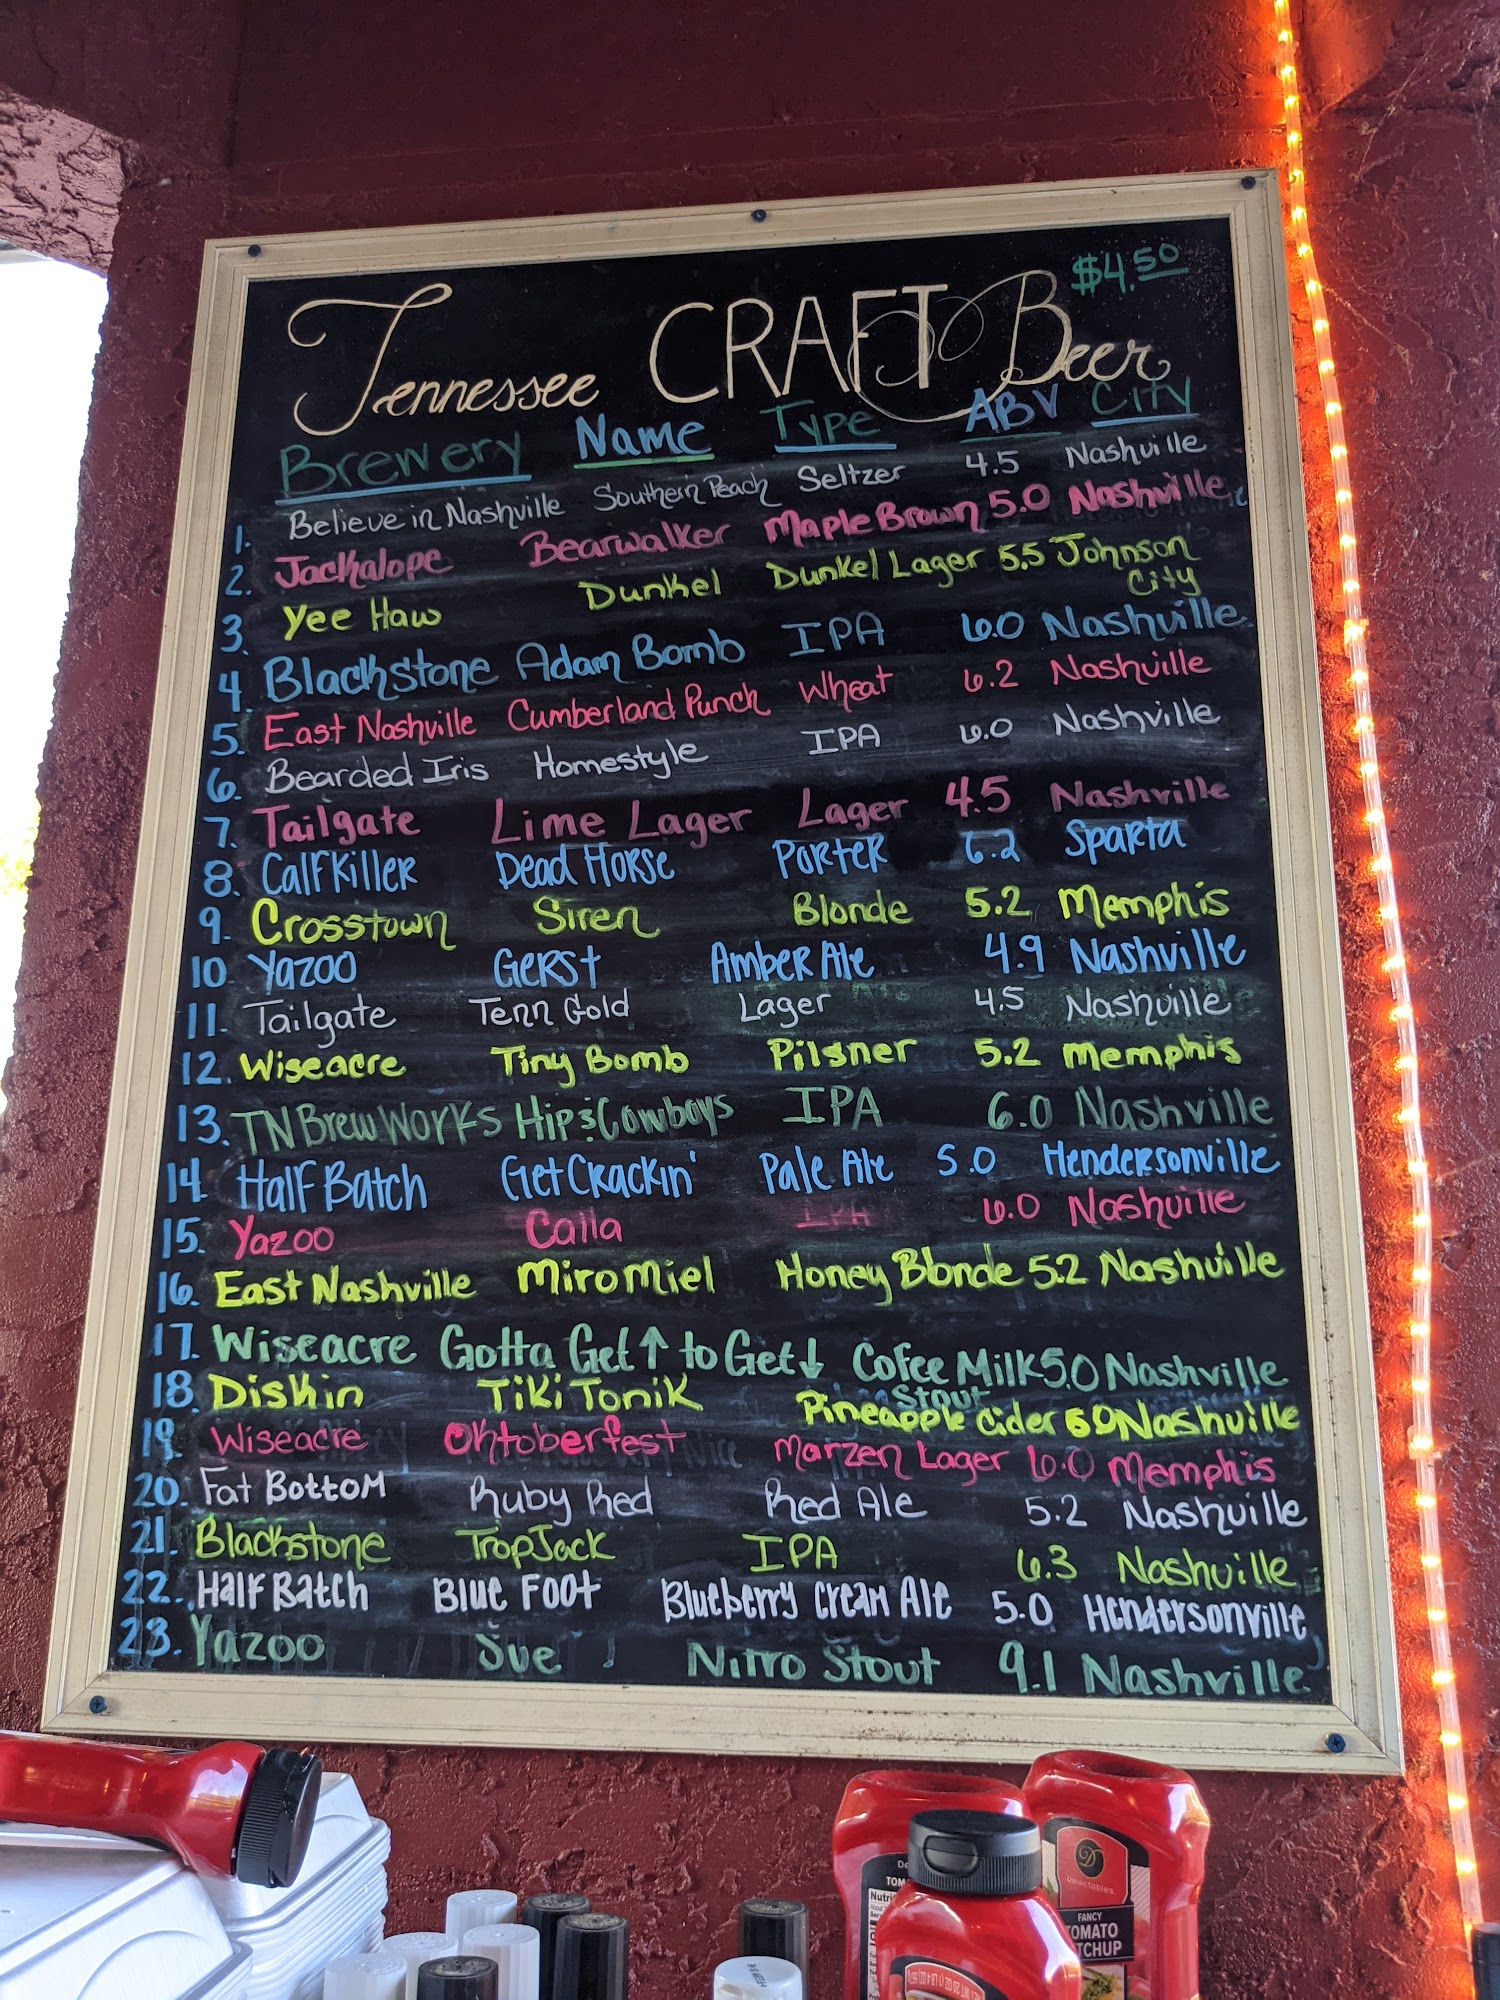 $4.50
Tennessee CRAFT Beer
Brewery Name Type ABV City
1. Believe in Nashville Southern Peach Seltzer 4.5 Nashville
2. Jackalope Bearwalker Maple Brown 5.0 Nashville
3. Yee Haw Dunkel Dunkel Lager 5.5 Johnson City
4. Blackstone Adam Bomb IPA 6.0 Nashville
5. East Nashville Cumberland Punch Wheat 6.2 Nashville
6. Bearded Iris Homestyle IPA 6.0 Nashville
7. Tailgate Lime Lager Lager 4.5 Nashville
8. Calfkiller Dead Horse Porter 6.2 Sparta
9. Crosstown Siren Blonde 5.2 Memphis
10 Yazoo Gerst Amber Ale 4.9 Nashville
11. Tailgate Tenn Gold Lager 4.5 Nashville
12. Wiseacre Tiny Bomb Pilsner 5.2 Memphis
13. TN Brew Works Hip & Cowboys IPA 6.0 Nashville
14. Half Batch Get Crackin' Pale Ale 5.0 Hendersonville
15. Yazoo Calla IPA 6.0 Nashville
16. East Nashville Miro Miel Honey Blonde 5.2 Nashville
17. Wiseacre Gotta Get ↑ to Get ↓ Cofee Milk Stout 5.0 Nashville
18. Diskin Tiki Tonik Pineapple Cider 5.0 Nashville
19. Wiseacre Oktoberfest Marzen Lager 6.0 Memphis
20. Fat Bottom Ruby Red Red Ale 5.2 Nashville
21. Blackstone TropJack IPA 6.3 Nashville
22. Half Batch Blue Foot Blueberry Cream Ale 5.0 Hendersonville
23. Yazoo Sue Nitro Stout 9.1 Nashville
Delectables.
FANCY
TOMATO